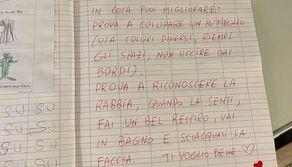 IN COSA PUOI MIGLIORARE:
PROVA A COLORARE UN PO' MEGLIO
(USA COLORI DIVERSI, RIEMPI
GLI SPAZI, NON USCIRE DAI
BORDI).
PROVA A RICONOSCERE LA
RABBIA, QUANDO LA SENTI,
FAI UN BEL RESPIRO, VAI
IN BAGNO E SCIACQUATI LA
FACCIA. TI VOGLIO BENE ♡
SU SU
SU SU
SU SU